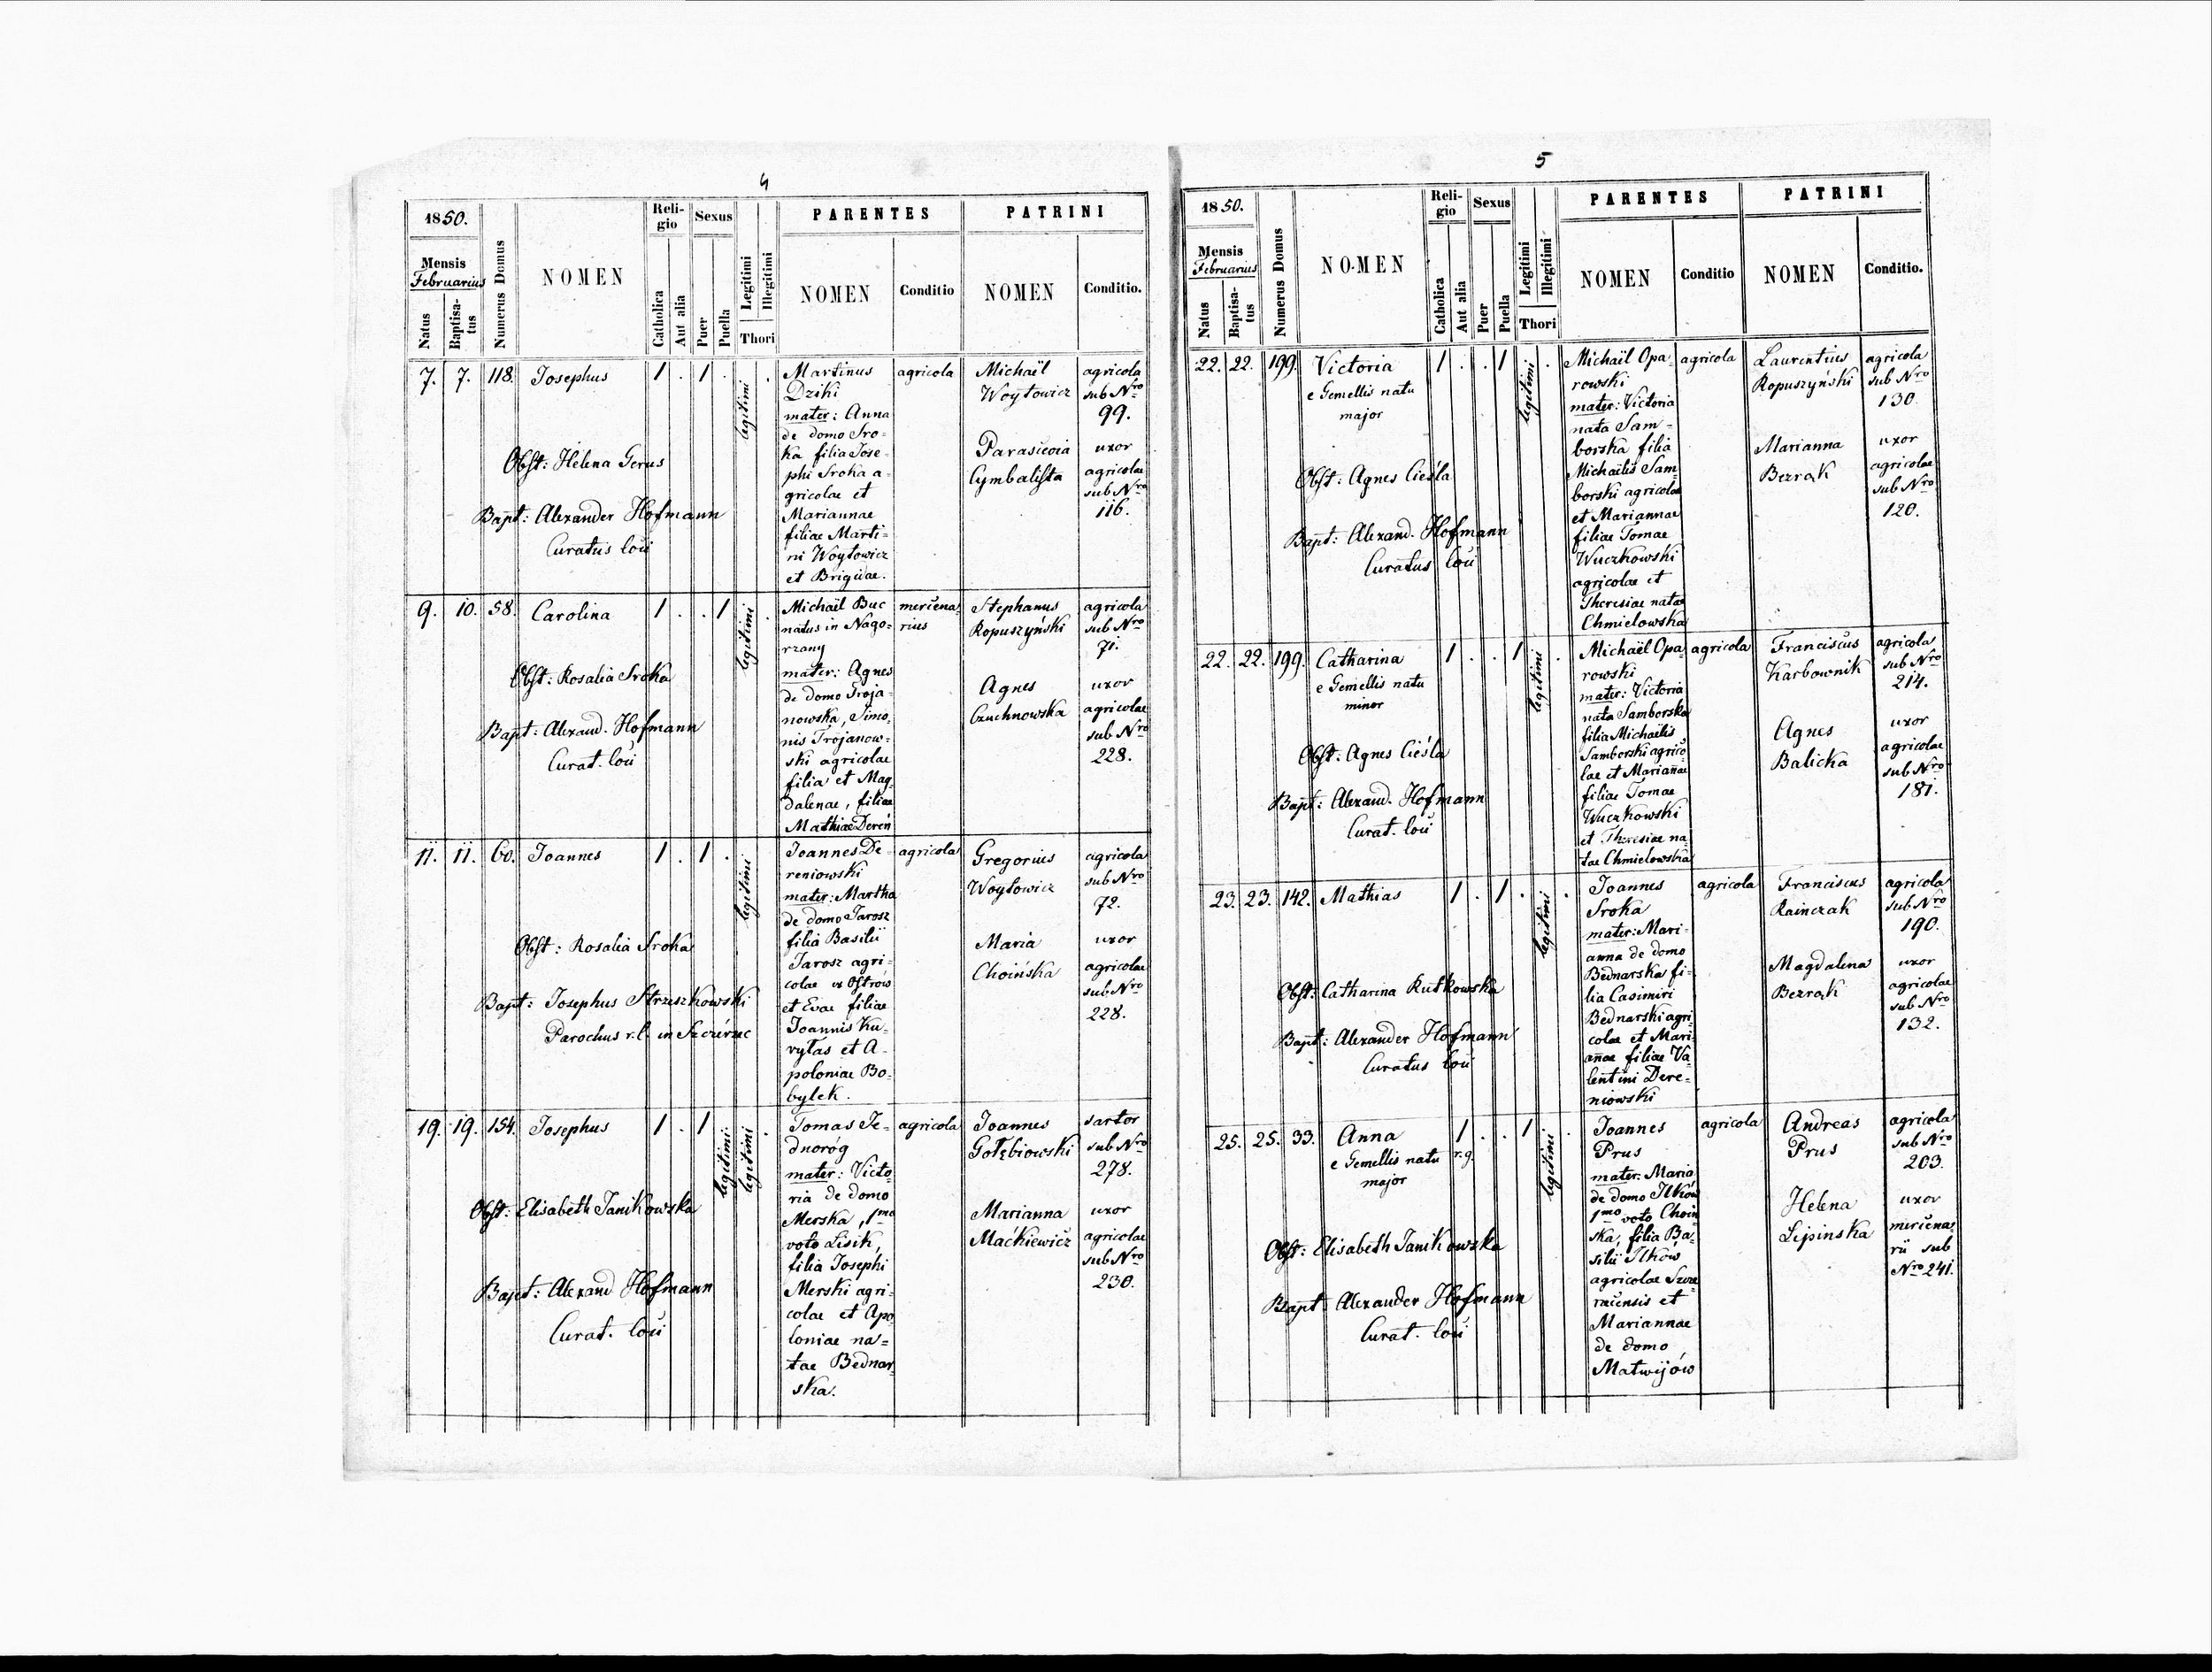 4
1850.
Mensis
Februarius
Natus
Baptisa-
tus
Numerus Domus
NOMEN
Reli-
gio
Catholica
Aut alia
Sexus
Puer
Puella
Legitimi
Illegitimi
Thori
PARENTES
NOMEN
Conditio
PATRINI
NOMEN
Conditio.
7. 7. 118. Josephus 1 . 1 .
legitimi
Obst: Helena Gerus
Bapt: Alexander Hofmann
Curatus loci
Martinus
Dziki
mater: Anna
de domo Sro-
ka filia Jose-
phi Sroka a-
gricolae et
Mariannae
filiae Marti-
ni Woytowicz
et Brigidae.
agricola
Michaël
Woytowicz
agricola
sub Nro
99.
Parascevia
Cymbalista
uxor
agricolae
sub Nro
116.
9. 10. 58. Carolina 1 . . 1
legitimi
Obst: Rosalia Sroka
Bapt: Alexand. Hofmann
Curat. loci
Michaël Buc
natus in Nago-
rzany
mater: Agnes
de domo Troja-
nowska, Simo-
nis Trojanow-
ski agricolae
filia et Mag-
dalenae, filiae
Mathiae Dereń
mercena-
rius
Stephanus
Ropuszyński
agricola
sub Nro
71.
Agnes
Czuchnowska
uxor
agricolae
sub Nro
228.
11. 11. 60. Joannes 1 . 1 .
legitimi
Obst: Rosalia Sroka
Bapt: Josephus Strzeszkowski
Parochus r.l. in Szczérzec
Joannes De-
reniowski
mater: Martha
de domo Jarosz
filia Basilii
Jarosz agri-
colae ex Ostrów
et Evae filiae
Joannis Ku-
rytas et A-
poloniae Bo-
bylek.
agricola
Gregorius
Woytowicz
agricola
sub Nro
72.
Maria
Choińska
uxor
agricolae
sub Nro
228.
19. 19. 154. Josephus 1 . 1
legitimi
legitimi
Obst: Elisabeth Janikowska
Bapt: Alexand Hofmann
Curat. loci
Tomas Je-
dnoróg
mater: Victo-
ria de domo
Merska, 1mo
voto Lisik,
filia Josephi
Merski agri-
colae et Apo-
loniae na-
tae Bednar-
ska.
agricola
Joannes
Gołębiowski
sartor
sub Nro
278.
Marianna
Maćkiewicz
uxor
agricolae
sub Nro
230.
5
1850.
Mensis
Februarius
Natus
Baptisa-
tus
Numerus Domus
NOMEN
Reli-
gio
Catholica
Aut alia
Sexus
Puer
Puella
Legitimi
Illegitimi
Thori
PARENTES
NOMEN
Conditio
PATRINI
NOMEN
Conditio.
22. 22. 199. Victoria 1 . . 1
e Gemellis natu
major
legitimi
Obst: Agnes Cieśla
Bapt: Alexand. Hofmann
Curatus loci
Michaël Opa-
rowski
mater: Victoria
nata Sam-
borska filia
Michaëlis Sam-
borski agricolae
et Mariannae
filiae Tomae
Wuczkowski
agricolae et
Theresiae natae
Chmielowska
agricola
Laurentius
Ropuszyński
agricola
sub Nro
130.
Marianna
Bezrak
uxor
agricolae
sub Nro
120.
22. 22. 199. Catharina 1 . . 1
e Gemellis natu
minor
legitimi
Obst: Agnes Cieśla
Bapt: Alexand. Hofmann
Curat. loci
Michaël Opa-
rowski
mater: Victoria
nata Samborska
filia Michaëlis
Samborski agrico-
lae et Marianae
filiae Tomae
Wuczkowski
et Theresiae na-
tae Chmielowska
agricola
Franciscus
Karbownik
agricola
sub Nro
214.
Agnes
Balicka
uxor
agricolae
sub Nro
187.
23. 23. 142. Mathias 1 . 1 .
legitimi
Obst: Catharina Rutkowska
Bapt: Alexander Hofmann
Curatus loci
Joannes
Sroka
mater: Mari-
anna de domo
Bednarska fi-
lia Casimiri
Bednarski agri-
colae et Mari-
anae filiae Va-
lentini Dere-
niowski
agricola
Franciscus
Rainczak
agricola
sub Nro
190.
Magdalena
Bezrak
uxor
agricolae
sub Nro
132.
25. 25. 33. Anna 1 . . 1
e Gemellis natu r.g.
major
legitimi
Obst: Elisabeth Janikowska
Bapt: Alexander Hofmann
Curat. loci
Joannes
Prus
mater: Maria
de domo Ilków
1mo voto Choiń-
ska, filia Ba-
silii Ilków
agricolae Szcze-
recensis et
Mariannae
de domo
Matwijów
agricola
Andreas
Prus
agricola
sub Nro
203.
Helena
Lipinska
uxor
mercena-
rii sub
Nro 241.